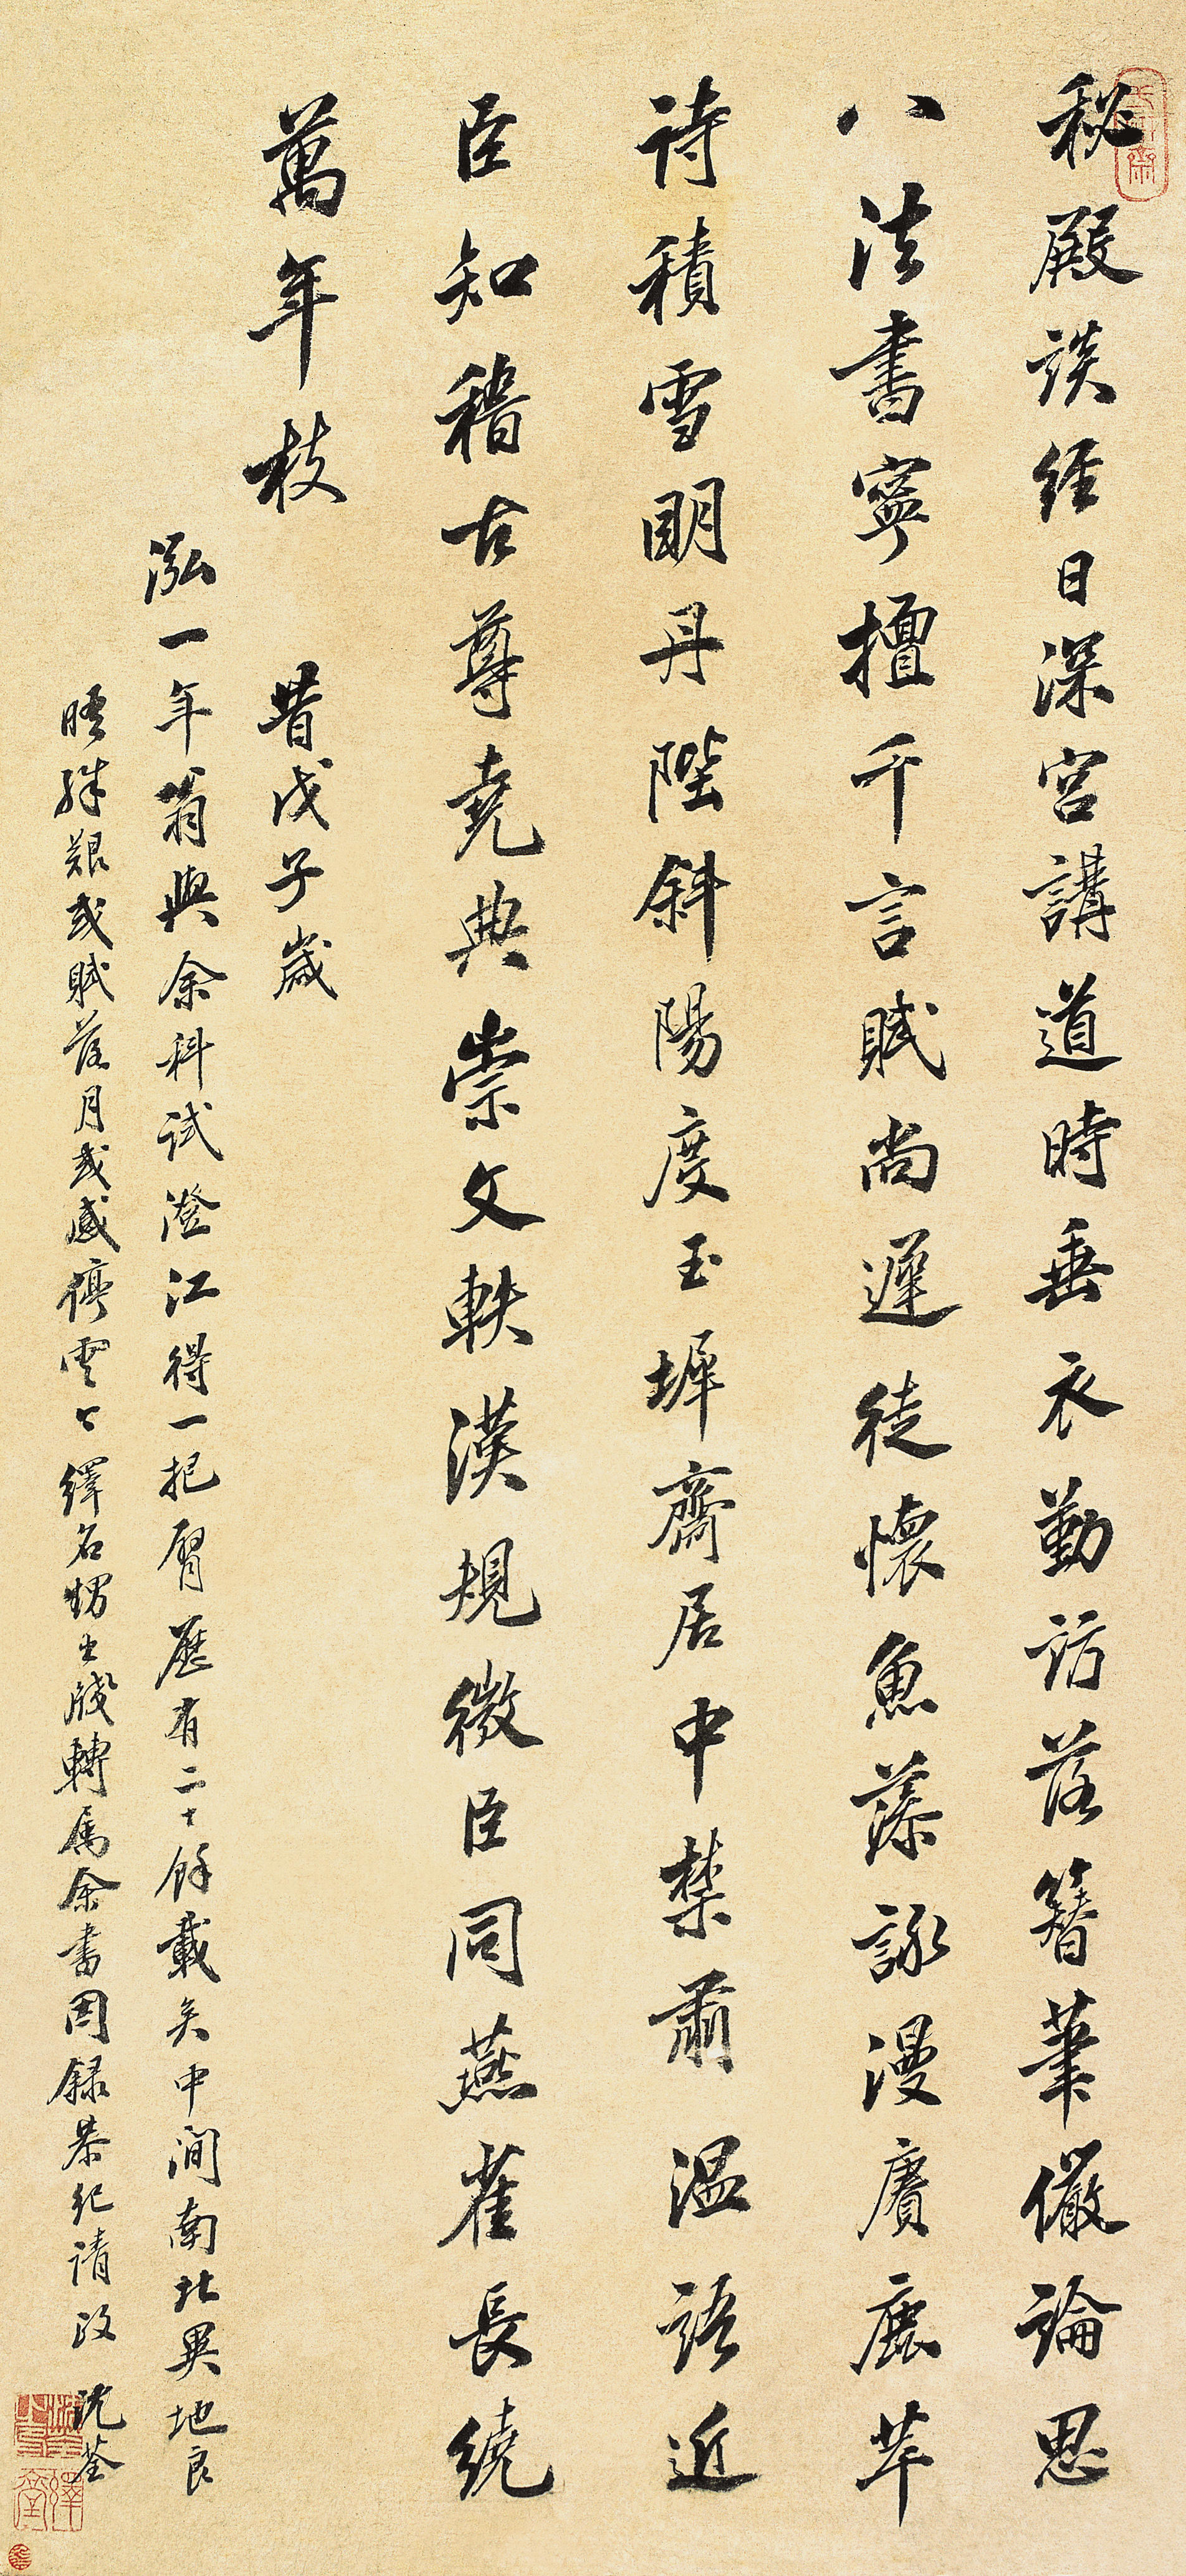 秘殿談經日深宮講道時垂衣勤訪落簪筆儼論思
八法書寧擅千言賦尚遲徒懷魚藻詠漫賡鹿苹
詩積雪明丹陛斜陽度玉墀齋居中禁肅溫語近
臣知稽古尊堯典崇文軼漢規微臣同燕雀長繞
萬年枝
昔戊子歲
泓一年翁與余科試澄江得一把臂歷有二十餘載矣中間南北異地良
晤殊艱或賦落月或感停雲繹名甥出牋轉屬余書因錄恭紀請政 沈荃